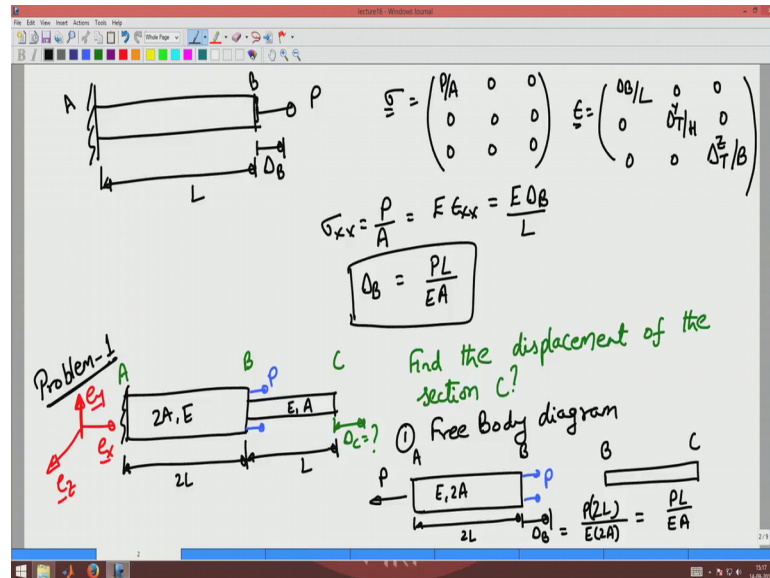 lecture16 - Windows Journal
File Edit View Insert Actions Tools Help
Whole Page
B I
A
B
P
Δ_B
L
σ = (P/A 0 0
0 0 0
0 0 0)
ε = (ΔB/L 0 0
0 Δ^y_T/H 0
0 0 Δ^z_T/B)
σxx = P/A = E ϵxx = E ΔB/L
Δ_B = PL/EA
Problem-1
A B C
P
2A, E
E, A
Δc = ?
2L
L
e_y
e_x
e_z
Find the displacement of the
section C?
① Free Body diagram
A B B C
P
E, 2A
P
2L
Δ_B = P(2L)/E(2A) = PL/EA
2
2/9
15:17